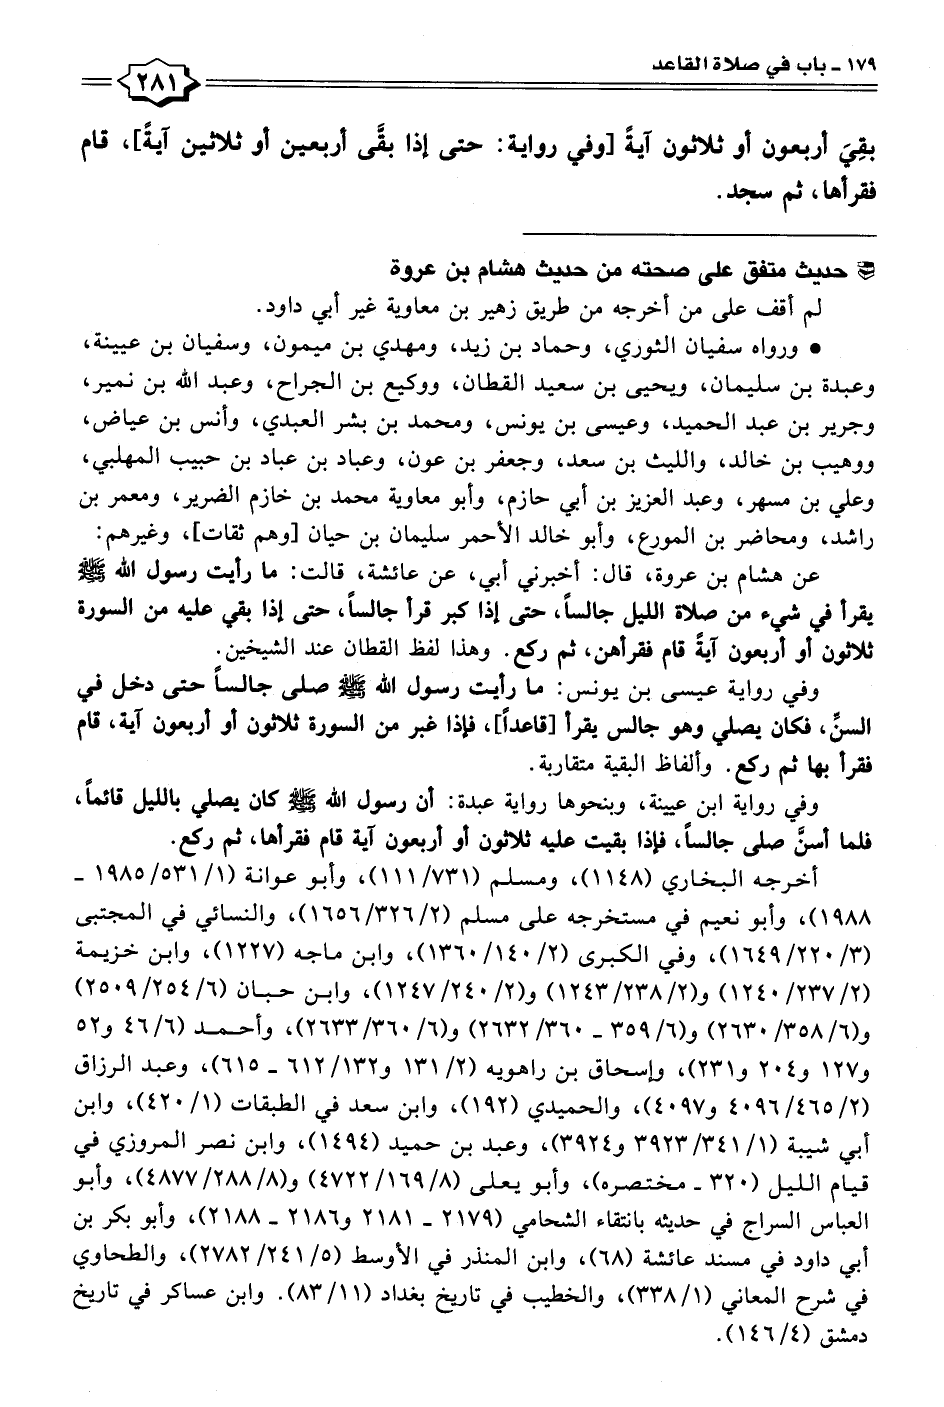 ١٧٩ ـ باب في صلاة القاعد
٢٨١
بقِيَ أربعون أو ثلاثون آيةً [وفي رواية: حتى إذا بقَّى أربعين أو ثلاثين آيةً]، قام
فقرأها، ثم سجد.
حديث متفق على صحته من حديث هشام بن عروة
لم أقف على من أخرجه من طريق زهير بن معاوية غير أبي داود.
• ورواه سفيان الثوري، وحماد بن زيد، ومهدي بن ميمون، وسفيان بن عيينة،
وعبدة بن سليمان، ويحيى بن سعيد القطان، ووكيع بن الجراح، وعبد الله بن نمير،
وجرير بن عبد الحميد، وعيسى بن يونس، ومحمد بن بشر العبدي، وأنس بن عياض،
ووهيب بن خالد، والليث بن سعد، وجعفر بن عون، وعباد بن عباد بن حبيب المهلبي،
وعلي بن مسهر، وعبد العزيز بن أبي حازم، وأبو معاوية محمد بن خازم الضرير، ومعمر بن
راشد، ومحاضر بن المورع، وأبو خالد الأحمر سليمان بن حيان [وهم ثقات]، وغيرهم:
عن هشام بن عروة، قال: أخبرني أبي، عن عائشة، قالت: ما رأيت رسول الله ﷺ
يقرأ في شيء من صلاة الليل جالساً، حتى إذا كبر قرأ جالساً، حتى إذا بقي عليه من السورة
ثلاثون أو أربعون آيةً قام فقرأهن، ثم ركع. وهذا لفظ القطان عند الشيخين.
وفي رواية عيسى بن يونس: ما رأيت رسول الله ﷺ صلى جالساً حتى دخل في
السنِّ، فكان يصلي وهو جالس يقرأ [قاعداً]، فإذا غبر من السورة ثلاثون أو أربعون آية، قام
فقرأ بها ثم ركع. وألفاظ البقية متقاربة.
وفي رواية ابن عيينة، وبنحوها رواية عبدة: أن رسول الله ﷺ كان يصلي بالليل قائماً،
فلما أسنَّ صلى جالساً، فإذا بقيت عليه ثلاثون أو أربعون آية قام فقرأها، ثم ركع.
أخرجه البخاري (١١٤٨)، ومسلم (١١١/٧٣١)، وأبو عوانة (١/ ١٩٨٥/٥٣١ ـ
١٩٨٨)، وأبو نعيم في مستخرجه على مسلم (٢/ ١٦٥٦/٣٢٦)، والنسائي في المجتبى
(٣/ ١٦٤٩/٢٢٠)، وفي الكبرى (٢/ ١٣٦٠/١٤٠)، وابن ماجه (١٢٢٧)، وابن خزيمة
(٢/ ١٢٤٠/٢٣٧) و(٢/ ١٢٤٣/٢٣٨) و(٢/ ١٢٤٧/٢٤٠)، وابن حبان (٦/ ٢٥٠٩/٢٥٤)
و(٦/ ٢٦٣٠/٣٥٨) و(٦/ ٣٥٩ ـ ٢٦٣٢/٣٦٠) و(٦/ ٢٦٣٣/٣٦٠)، وأحمد (٦/ ٤٦ و٥٢
و١٢٧ و٢٠٤ و٢٣١)، وإسحاق بن راهويه (٢/ ١٣١ و٦١٢/١٣٢ ـ ٦١٥)، وعبد الرزاق
(٢/ ٤٠٩٦/٤٦٥ و٤٠٩٧)، والحميدي (١٩٢)، وابن سعد في الطبقات (١/ ٤٢٠)، وابن
أبي شيبة (١/ ٣٩٢٣/٣٤١ و٣٩٢٤)، وعبد بن حميد (١٤٩٤)، وابن نصر المروزي في
قيام الليل (٣٢٠ ـ مختصره)، وأبو يعلى (٨/ ٤٧٢٢/١٦٩) و(٨/ ٤٨٧٧/٢٨٨)، وأبو
العباس السراج في حديثه بانتقاء الشحامي (٢١٧٩ ـ ٢١٨١ و٢١٨٦ ـ ٢١٨٨)، وأبو بكر بن
أبي داود في مسند عائشة (٦٨)، وابن المنذر في الأوسط (٥/ ٢٧٨٢/٢٤١)، والطحاوي
في شرح المعاني (١/ ٣٣٨)، والخطيب في تاريخ بغداد (١١/ ٨٣). وابن عساكر في تاريخ
دمشق (٤/ ١٤٦).